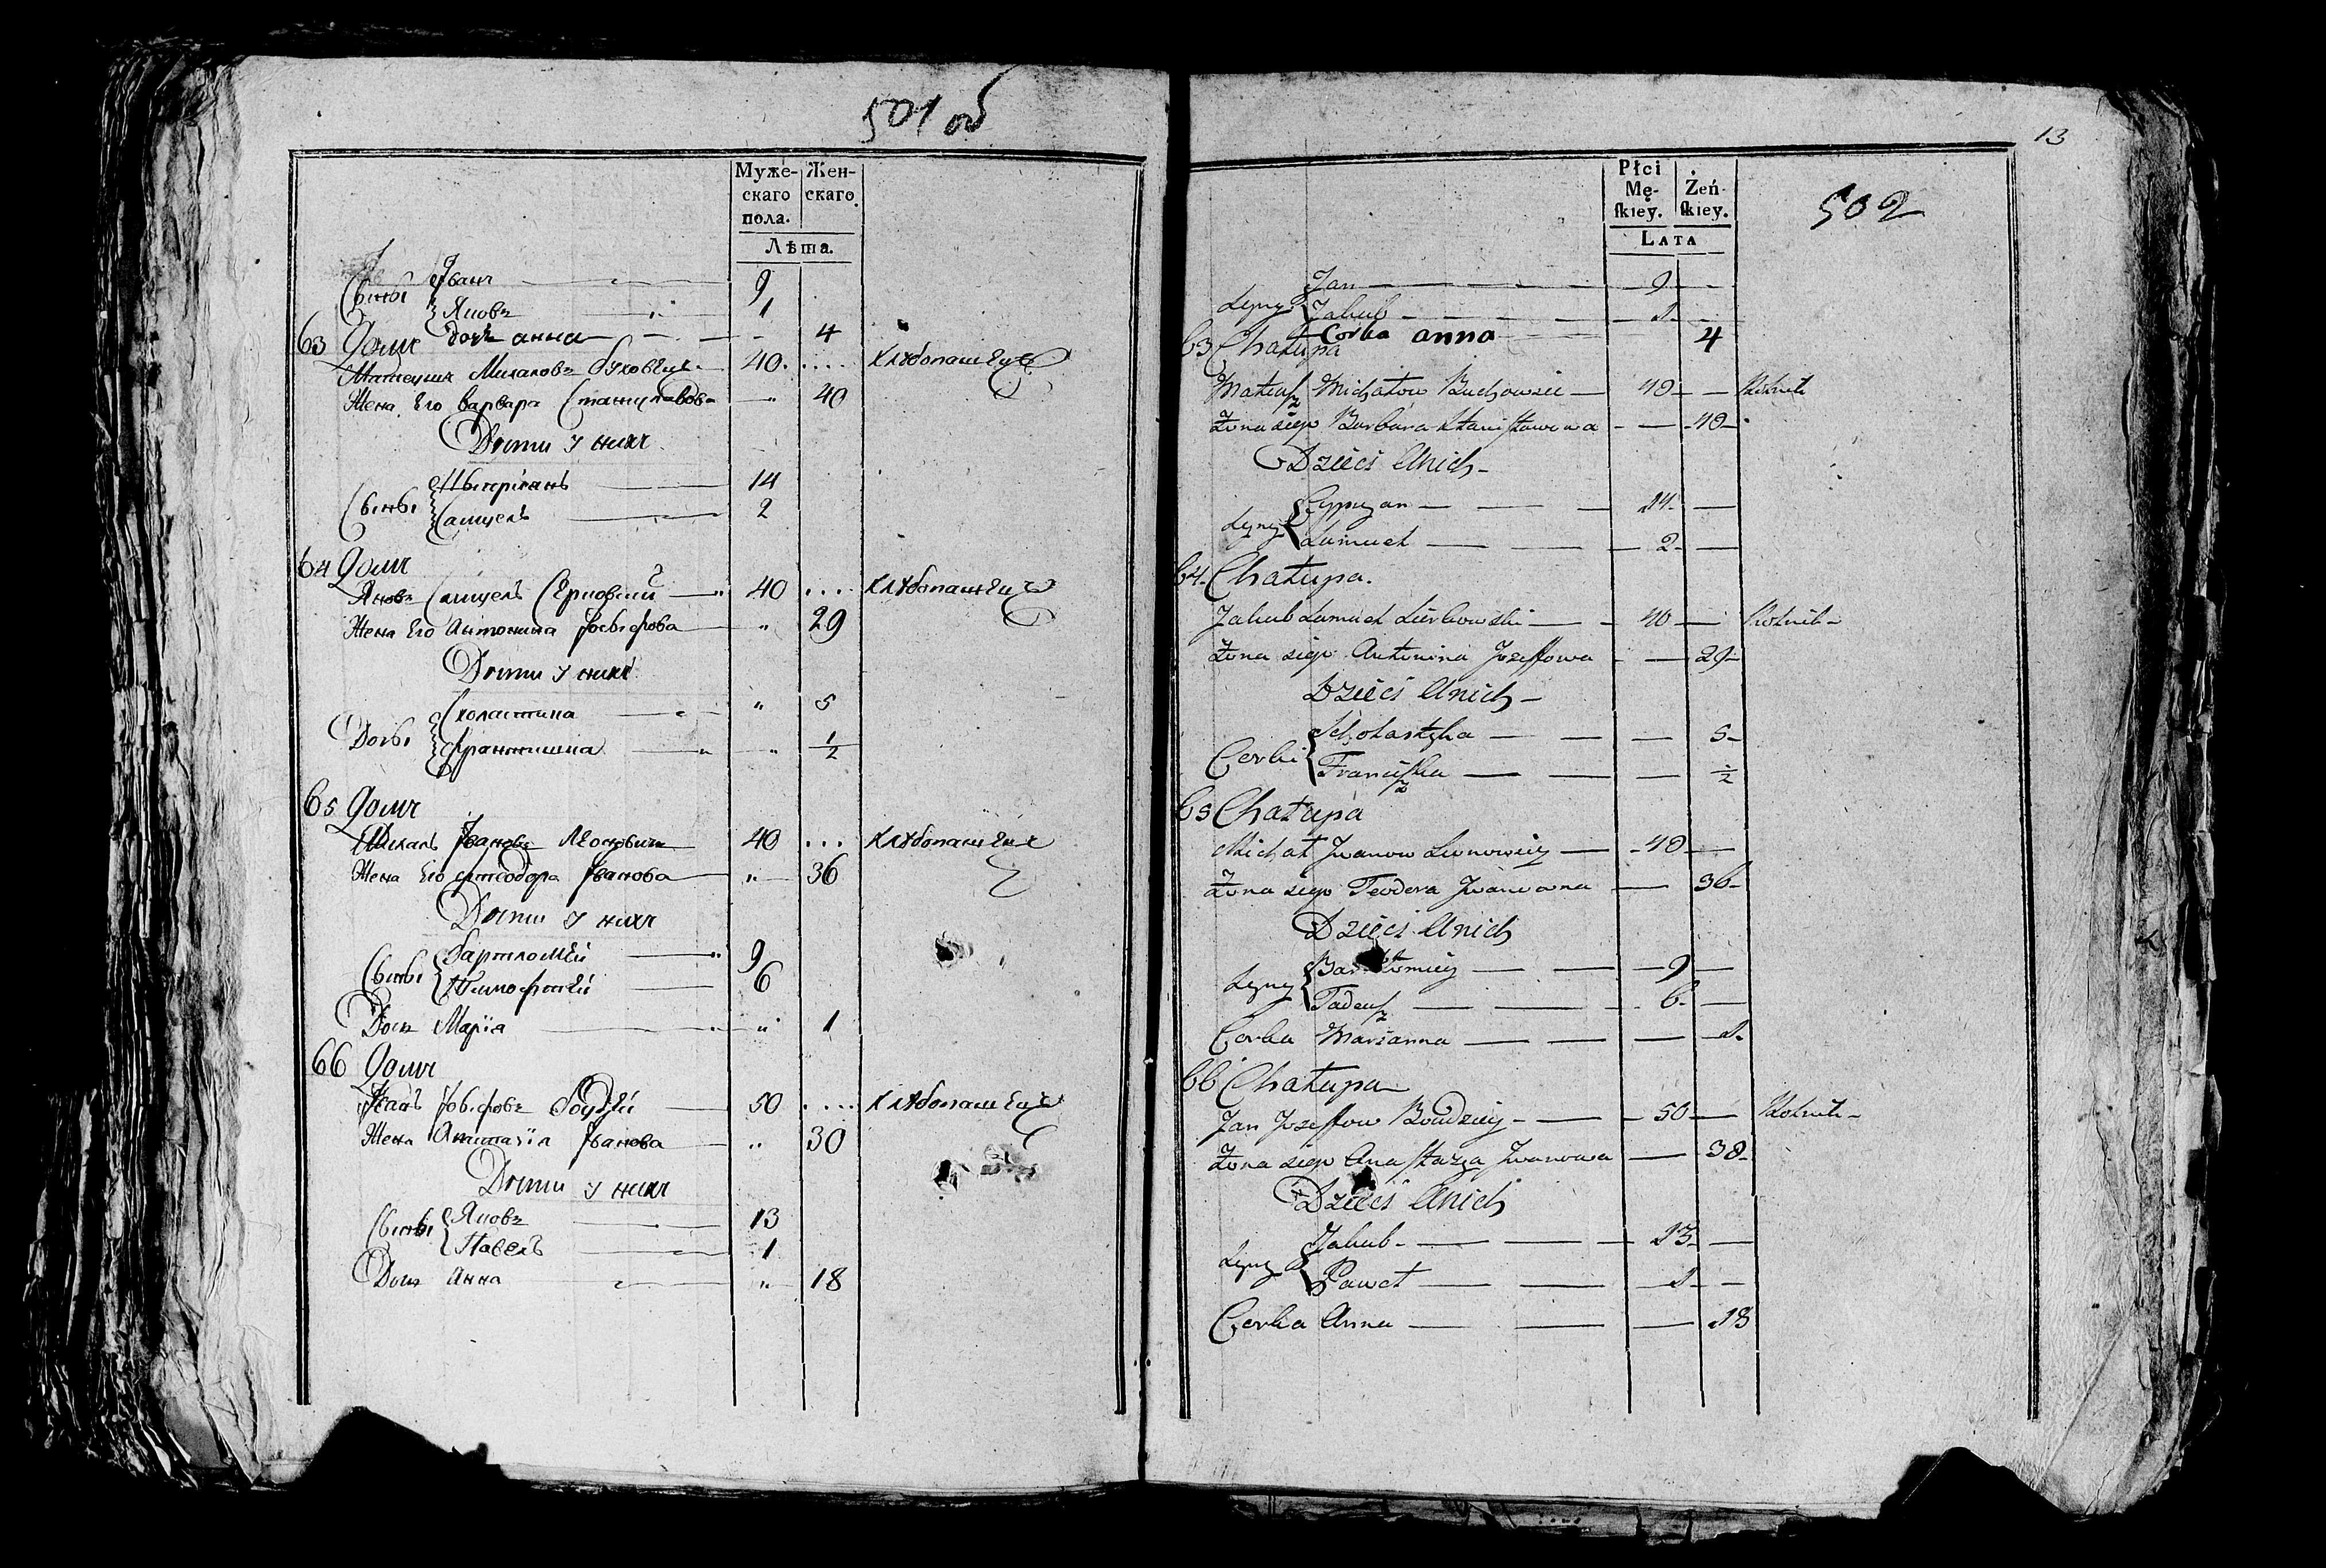 501 об
Муже-
скаго
пола.
Жен-
скаго.
Лѣта.
Сыны
Иванъ 9
Яковъ 1
дочь анна 4
63 Домъ
Матеушъ Михаловъ Буховецъ 40. .... хлѣбопашецъ
Жена Его Варвара Станиславова " 40
Дѣти у нихъ
Сыны
Цыпріанъ 14
Самуелъ 2
64 Домъ
Яковъ Самуелъ Серковскій " 40 .... хлѣбопашецъ
Жена Его Антонина Іосыфова " 29
Дѣти у нихъ
Дочьы
Схоластика " 5
Франтишка " 1/2
65 Домъ
Михалъ Ивановъ Леоновичъ 40 ... хлѣбопашецъ
Жена Его Феодора Иванова " 36
Дѣти у нихъ
Сыны
Бартломѣй " 9
Тимофтѣй 6
Дочь Марія " 1
66 Домъ
Іосыфовъ 50 .... хлѣбопашецъ
Жена Анастазія Иванова " 30
Дѣти у нихъ
Сыны
Яковъ 13
Павелъ 1
Дочь Анна " 18
13
502
Płci
Mę-
skiey.
Żeń-
skiey.
LATA
Syny
Jan 9
Jakub 1
Corka anna 4
63 Chałupa
Mateusz Michałow Buchowiec 40 Rolnik
Żona Iego Barbara Stanisławowa 40
Dzieci Unich
Syny
Cypryan 14
Samuel 2
64. Chałupa.
Jakub Samuel Sierkowski 40 Rolnik
Żona Iego Antonina Jozeffowa 29
Dzieci Unich
Corki
Scholastyka 5
Franciszka 1/2
65 Chałupa
Michał Jwanow Leonowicz 40
Żona Iego Teodora Jwanowna 36
Dzieci Unich
Syny
Bartłomiey 9
Tadeusz 6
Corka Marianna 1
66 Chałupa
Jan Jozeffow 50 Rolnik
Żona Iego Anastazya Jwanowa 38
Dzieci Unich
Syny
Jakub 13
Paweł 1
Corka Anna 18